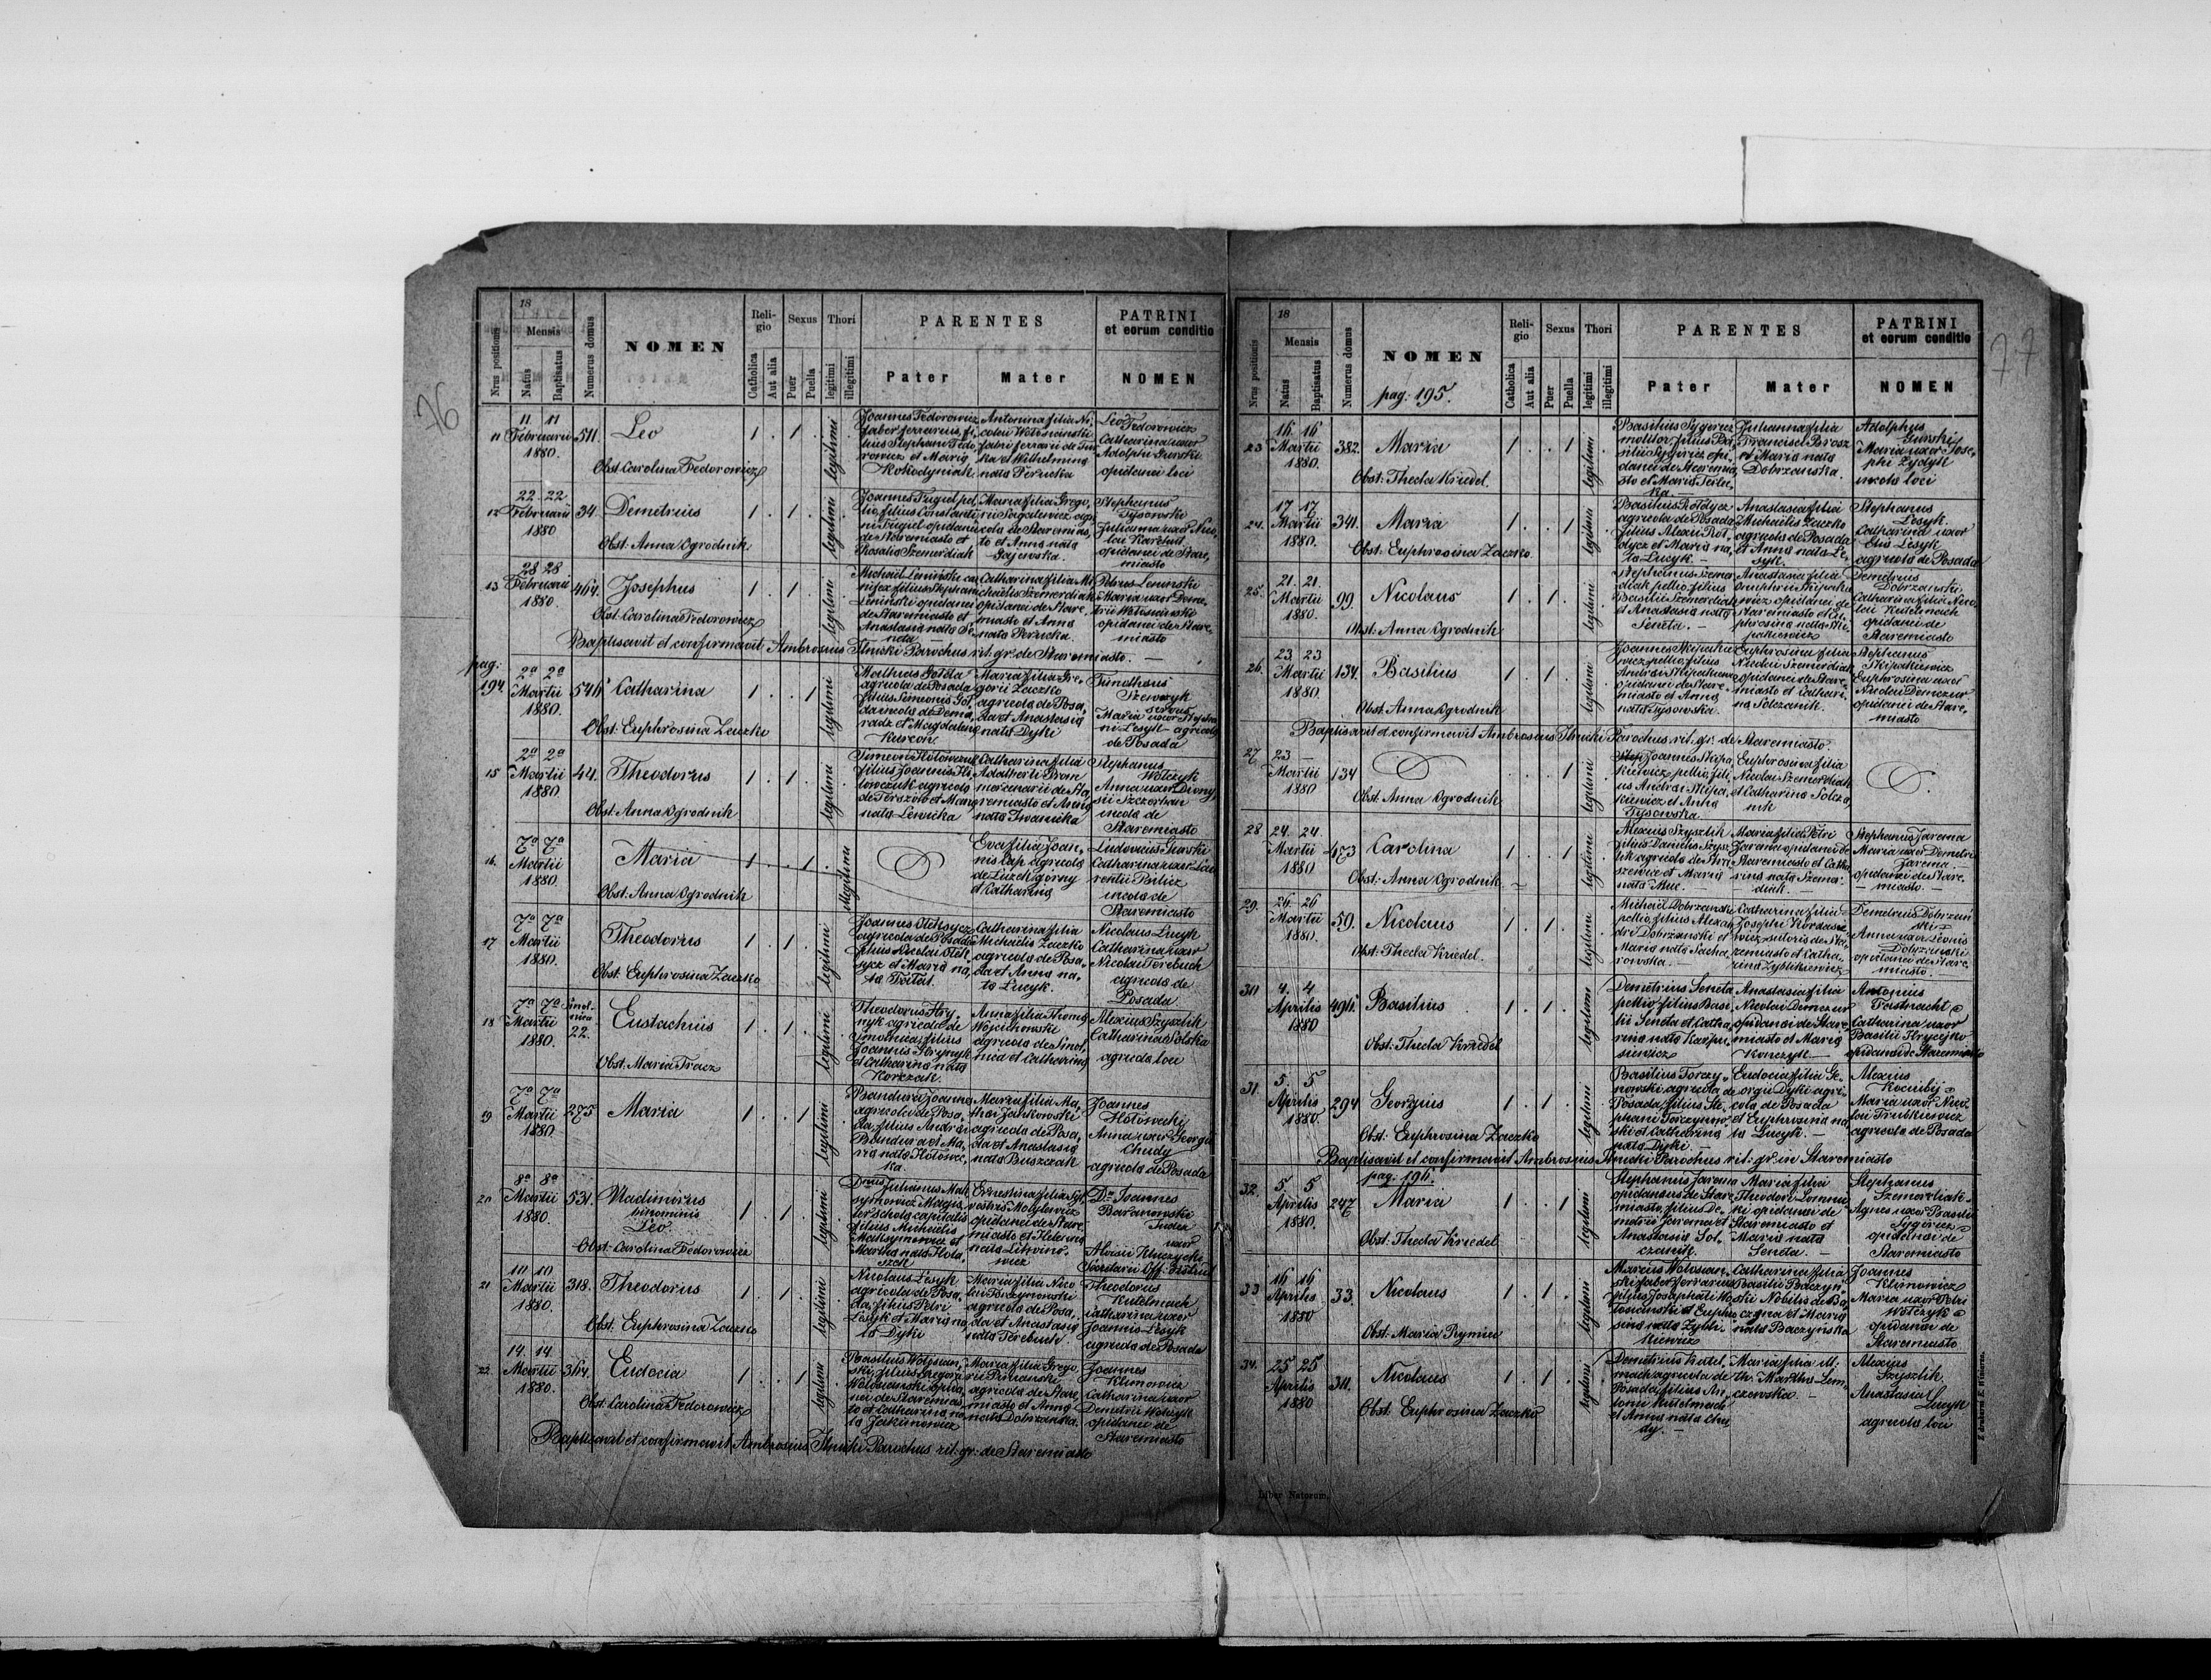 76
18
Nrus positionis
Mensis
Natus
Baptisatus
Numerus domus
NOMEN
Religio
Catholica
Aut alia
Sexus
Puer
Puella
Thori
legitimi
illegitimi
PARENTES
Pater
Mater
PATRINI
et eorum conditio
NOMEN
11
11 11
Februarii
1880.
511.
Leo
Obst. Carolina Fedorowicz
1 . 1 .
legitimi
Joannes Fedorowicz
faber ferrarius, fi,
lius Stephani Fedo,
rowicz et Maria
Kokodyniak
Antonina filia Ni,
colai Wołosianski
fabri ferrarii de
et Wilhelmina
nata Perucka
Leo
Fedorowicz
Catharina uxor
Adolphi Gurski
opidanei loci
12
22 22
Februarii
1880
34.
Demetrius
Obst: Anna Ogrodnik
1 . 1 .
legitimi
Joannes Fugiel pel,
lio, filius Constanti,
ni Fugiel opidanei
de Staremiasto et
Rosalia Szemerdiak
Maria filia Grego,
rii agri
cola de Staremias,
to et Anna nata
Gajewska.
Stephanus
Tysowski
Julianna uxor Nico,
lai
opidanei de Stare,
miasto
13
28 28
Februarii
1880.
464.
Josephus
Obst: Carolina Fedorowicz
1 . 1 .
legitimi
Michael Leninski car
nifex, filius Stephani
Leninski opidanei
de Staremiasto et
Anastasia nata Se,
neta
Catharina filia Mi
chaelis Szemerdiak
opidanei de Stare,
miasto et Anna
nata Perucka.
Petrus Leninski
Maria uxor Deme,
trii Wołosianski
opidanei de Stare,
miasto
Baptisavit et confirmavit Ambrosius Ilnicki Parochus rit: gr: de Staremiasto. —
pag:
194.
2a 2a
Martii
1880.
546.
Catharina
Obst: Euphrosina Zaczko
1 . . 1
legitimi
Mathias Gołda
agricola de Posada
filius Simeonis Goł,
da incola de Doma,
radz et Magdalena
Kurcon.
Maria filia Gre,
gorii Zaczko
agricola de Posa,
da et Anastasia
nata Dyki
Timotheus
Szewczyk
servus
Maria uxor Stepha
ni Lesyk agricola
de Posada
15
2a 2a
Martii
1880.
44.
Theodorus
Obst: Anna Ogrodnik
1 . 1 .
legitimi
Simeon
filius Joannis
agricola
de Terszow et Maria
nata Lewicka
Catharina filia
Adalberti Prom
mercenarii de Sta,
remiasto et Anna
nata Iwanicka
Stephanus
Wołczyk
Anna uxor Diony
sii Szczerban
incola de
Staremiasto
16.
7a 7a
Martii
1880.
Maria
Obst: Anna Ogrodnik
1 . . 1
illegitimi
Eva filia Joan,
nis Cap agricola
de Luzek górny
et Catharina
Ludovicus Gurski
Catharina uxor Lau
rentii Bilicz
incola de
Staremiasto
17
7a 7a
Martii
1880.
Theodorus
Obst: Euphrosina Zaczko
1 . 1 .
legitimi
Joannes Oleksycz
agricola de Posada
filius Nicolai Olek
sycz et Maria na,
ta
Catharina filia
Michaelis Zaczko
agricola de Posa,
da et Anna na,
ta Lucyk.
Nicolaus Lucyk
Catharina uxor
Nicolai Terebuch
agricola de
Posada
18
7a 7a
Martii
1880.
Smol,
nica
22.
Eustachius
Obst: Maria Tracz
1 . 1 .
legitimi
Theodorus Hry,
nyk agricola de
Smolnica, filius
Joannis Hrynyk
et Catharina nata
Korczak.
Anna filia Thoma
Wojcihowski
agricola de Smol,
nica et Catharina
Alexius Szyszlik
Catharina Solska
agricola loci
19
7a 7a
Martii
1880.
275
Maria
1 . . 1
legitimi
Bandura Joannes
agricola de Posa,
da, filius Andrei
Bandura et Ma,
ria nata Hołowec,
ka.
Maria filia Ma,
thei Jankowski
agricola de Posa,
da et Anastasia
nata Buszczak
Joannes
Hołowecki
Anna uxor Georgii
Chudy
agricola de Posada
20
8a 8a
Martii
1880.
531.
Vladimirus
binominis
Leo
Obst: Carolina Fedorowicz
1 . 1 .
legitimi
Dnus Julianus Mak
symowicz Magis,
ter schola capitalis
filius Michaelis
Maksymowicz et
Martha nata
Ernestina filia Syl,
vestris Mohylewicz
opidanei de Stare,
miasto et Helena
nata Litwino,
wicz
Dn. Joannes
Baranowski
Judex
uxor
Aloisii Kluczycki
Secretarii Off:
21
10 10
Martii
1880.
318.
Theodorus
Obst: Euphrosina Zaczko
1 . 1 .
legitimi
Nicolaus Lesyk
agricola de Posa,
da, filius Petri
Lesyk et Maria na,
ta Dyki
Maria filia Nico
lai Torczynowski
agricola de Posa,
da et Anastasia
nata Terebuch.
Theodorus
Kutelmach
Catharina uxor
Joannis Lesyk
agricola de Posada
22
14 14
Martii
1880.
364.
Eudocia
Obst: Carolina Fedorowicz
1 . . 1
legitimi
Basilius Wołosian,
ski, filius Gregorii
Wołosianski opida,
nei de Staremias,
to et Catharina na,
ta Jakimowicz
Maria filia Grego,
rii
agricola de Stare,
miasto et Anna
nata Dobrzanska.
Joannes
Klimowicz
Catharina uxor
Demetrii Wołczyk
opidanei de
Staremiasto
Baptisavit et confirmavit Ambrosius Ilnicki Parochus rit: gr: de Staremiasto
77
18
Nrus positionis
Mensis
Natus
Baptisatus
Numerus domus
NOMEN
pag: 195.
Religio
Catholica
Aut alia
Sexus
Puer
Puella
Thori
legitimi
illegitimi
PARENTES
Pater
Mater
PATRINI
et eorum conditio
NOMEN
23
16. 16
Martii
1880.
382.
Maria
Obst: Thecla Kriedel.
1 . . 1
legitimi
Basilius Sygericz
molitor, filius Ba,
silii Sygericz opi,
danei de Staremia,
sto et Maria
Julianna filia
Francisci Brosz
et Maria nata
Dobrzanska.
Adolphus
Gurski
Maria uxor Jose,
phi Zydyk
incola loci
24.
17 17
Martii
1880.
341.
Maria
Obst: Euphrosina Zaczko
1 . . 1
legitimi
Basilius
agricola de Posada
filius Alexii
et Maria na,
ta Lucyk. —
Anastasia filia
Michaelis Zaczko
agricola de Posada
et Anna nata Le,
syk.
Stephanus
Lesyk.
Catharina uxor
Elia Lesyk
agricola de Posada
25.
21. 21.
Martii
1880.
99.
Nicolaus
Obst: Anna Ogrodnik
1 . 1 .
legitimi
Stephanus Szemer,
diak pellio, filius
Basilii Szemerdiak
et Anastasia nata
Seneta. —
Anastasia filia
Onuphrii Skipakie
wicz opidanei de
Staremiasto et Eu,
phrosina nata Ski,
pakiewicz
Demetrius
Dobrzanski
Catharina filia Nico,
lai Kutelmach
opidanei de
Staremiasto
26.
23 23
Martii
1880.
134.
Basilius
Obst: Anna Ogrodnik
1 . 1 .
legitimi
Joannes Skipakie
wicz pellio, filius
Andrei Skipakiewicz
opidanei de Stare,
miasto et Anna
nata Tysowska.
Euphrosina filia
Nicolai Szemerdiak
opidanei de Stare,
miasto et Cathari,
na Solczanik.
Stephanus
Skipakiewicz
Euphrosina uxor
Nicolai Demczur
opidanei de Stare,
miasto
Baptisavit et confirmavit Ambrosius Ilnicki Parochus rit: gr: de Staremiasto.
27
23 —
Martii
1880
134
Obst: Anna Ogrodnik
. . . 1
legitimi
Joannes Skipa,
kiewicz pellio, fili,
us Andrei Skipa,
kiewicz et Anna
Tysowska.
Euphrosina filia
Nicolai Szemerdiak
et Catharina Solcza,
nik
28
24. 24.
Martii
1880
473
Carolina
Obst: Anna Ogrodnik. —
1 . . 1
legitimi
Alexius Szyszlik
filius Danielis Szysz
lik agricola de Stra
szewice et Maria
nata Muc. —
Maria filia Petri
Jarema opidanei de
Staremiasto et Catha
rina nata Szemer,
diak.
Stephanus Jarema
Maria uxor Demetri
Jarema. —
opidanei de Stare,
— miasto. —
29.
24. 26
Martii
1880.
50.
Nicolaus
Obst: Thecla Kriedel.
1 . 1 .
legitimi
Michael Dobrzanski
pellio, filius Alexan,
dri Dobrzanski et
Maria nata Sacha,
rowska.
Catharina filia
Josephi Kordasie
wicz, sutoris de Sta,
remiasto et Catha,
rina Zyblikiewicz
Demetrius Dobrzan
ski
Anna uxor Leonis
Dobrzanski
opidanei de Stare,
miasto.
30
4. 4
Aprilis
1880
496.
Basilius
Obst: Thecla Kriedel
1 . 1 .
legitimi
Demetrius Seneta
pellio, filius Basi,
lii Seneta et Catha,
rina nata Karpu,
siewicz
Anastasia filia
Nicolai Demczur
opidanei de Stare,
miasto et Maria
Konczyk —
Antonius
Fastnacht
Catharina uxor
Basilii Hrycejko
opidanei de Staremiasto
31.
5. 5
Aprilis
1880.
294
Georgius
Obst: Euphrosina Zaczko
1 . 1 .
legitimi
Basilius Torczy,
nowski agricola de
Posada, filius Ste,
phani Torczynow,
ski et Catharina
nata Dyki —
Eudocia filia Ge,
orgii Dyki agri,
cola de Posada
et Euphrosina na,
ta Lucyk. —
Alexius
Kociubij
Maria uxor Nico,
lai Trubkiewicz
agricola de Posada
Baptisavit et confirmavit Ambrosius Ilnicki Parochus rit: gr: in Staremiasto
32.
5. 5
Aprilis
1880.
247
pag. 196.
Maria
Obst: Thecla Kriedel
1 . . 1
legitimi
Stephanus Jarema
opidaneus de Stare
miasto, filius De,
metrii Jarema et
Anastasia Sol,
czanik.
Maria filia
Theodori Lomnic
ki opidanei de
Staremiasto et
Maria nata
Seneta. —
Stephanus
Szemerdiak
Agnes uxor Basilii
Sygericz
opidanei de
Staremiasto
33
16 16
Aprilis
1880
33.
Nicolaus
Obst: Maria Prymicz
1 . 1 .
legitimi
Marcus Wołosian,
ski faber ferrarius
filius Josaphati Wo,
łosianski et Euphro
sina nata Zybli,
kiewicz
Catharina filia
Basilii Baczyn,
skii Nobilis de Ba,
czyna et Maria
nata Baczyńska
Joannes
Klimowicz
Maria uxor Petri
Wołczyk
opidanei de
Staremiasto
34.
25 25
Aprilis
1880
311.
Nicolaus
Obst: Euphrosina Zaczko
1 . 1 .
legitimi
Demetrius Kutel,
mach agricola de
Posada, filius An,
tonii Kutelmach
et Anna nata Chu,
dy. —
Maria filia ill:
th. Martha Lem,
czowska. —
Alexius
Szyszlik.
Anastasia
Lucyk
agricola loci
Liber Natorum.